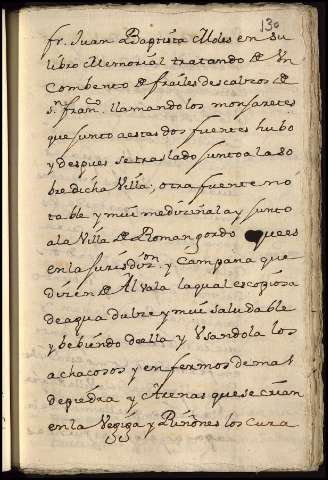 130
fr. Juan Baptista Moles en su
libro Memorial tratando de Un
Combento de frailes descalzos de
sn. franco. llamandolos monfaretes
que junto a estas dos fuentes hubo
y despues se traslado junto a la so
bre dicha Villa; otra fuente no
table y mui medizinal ay junto
a la Villa de Romangordo quees
en la Jurisdizon. y Campana que
dizen de Alvala la qual es copiosa
de agua dulze y mui saludable
y bebiendo de ella y Usandola los
achacosos y enfermos de mal
de piedra y Arenas que se crian
en la Vegiga y Riñones los cura